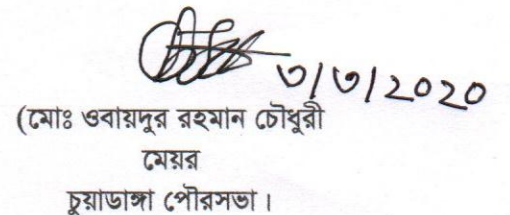 ৩/৩/2020
(মোঃ ওবায়দুর রহমান চৌধুরী
মেয়র
চুয়াডাঙ্গা পৌরসভা।